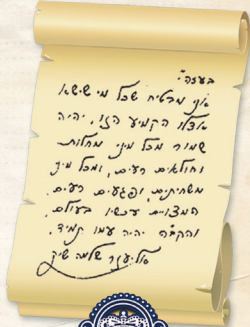 בעזה"י
אני מבטיח שכל מי שישא
אצלו הקמיע הזו, יהיה
שמור מכל מיני מחלות
וחולאים רעים, ומכל מיני
משחיתים, ופגעים רעים
המצוים עכשיו בעולם,
והקב"ה יהיה עמו תמיד.
אליעזר שלמה שיק